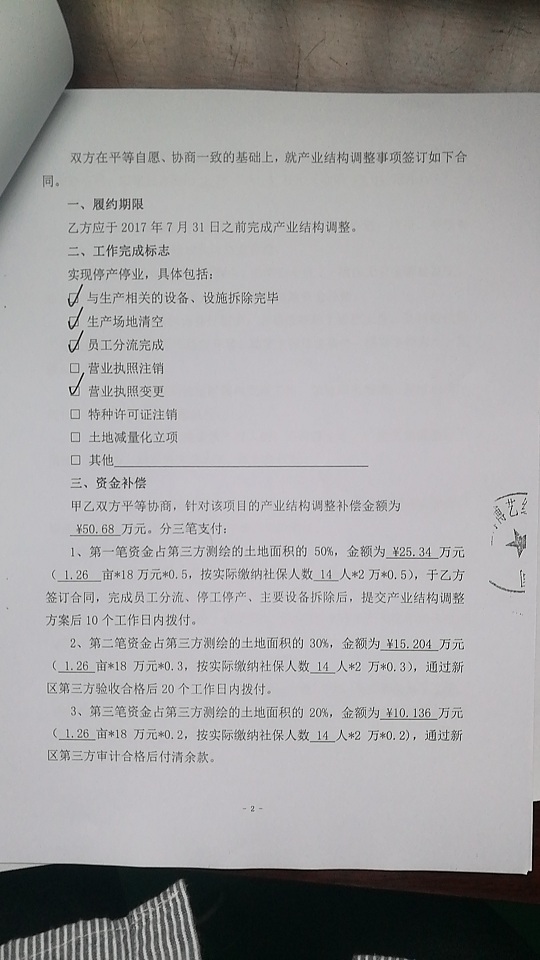 双方在平等自愿、协商一致的基础上，就产业结构调整事项签订如下合
同。
一、履约期限
乙方应于 2017 年 7 月 31 日之前完成产业结构调整。
二、工作完成标志
实现停产停业，具体包括：
☑ 与生产相关的设备、设施拆除完毕
☑ 生产场地清空
☑ 员工分流完成
□ 营业执照注销
☑ 营业执照变更
□ 特种许可证注销
□ 土地减量化立项
□ 其他
三、资金补偿
甲乙双方平等协商，针对该项目的产业结构调整补偿金额为
¥50.68 万元。分三笔支付：
1、第一笔资金占第三方测绘的土地面积的 50%，金额为 ¥25.34 万元
（ 1.26 亩*18 万元*0.5，按实际缴纳社保人数 14 人*2 万*0.5），于乙方
签订合同，完成员工分流、停工停产、主要设备拆除后，提交产业结构调整
方案后 10 个工作日内拨付。
2、第二笔资金占第三方测绘的土地面积的 30%，金额为 ¥15.204 万元
（ 1.26 亩*18 万元*0.3，按实际缴纳社保人数 14 人*2 万*0.3），通过新
区第三方验收合格后 20 个工作日内拨付。
3、第三笔资金占第三方测绘的土地面积的 20%，金额为 ¥10.136 万元
（ 1.26 亩*18 万元*0.2，按实际缴纳社保人数 14 人*2 万*0.2），通过新
区第三方审计合格后付清余款。
- 2 -